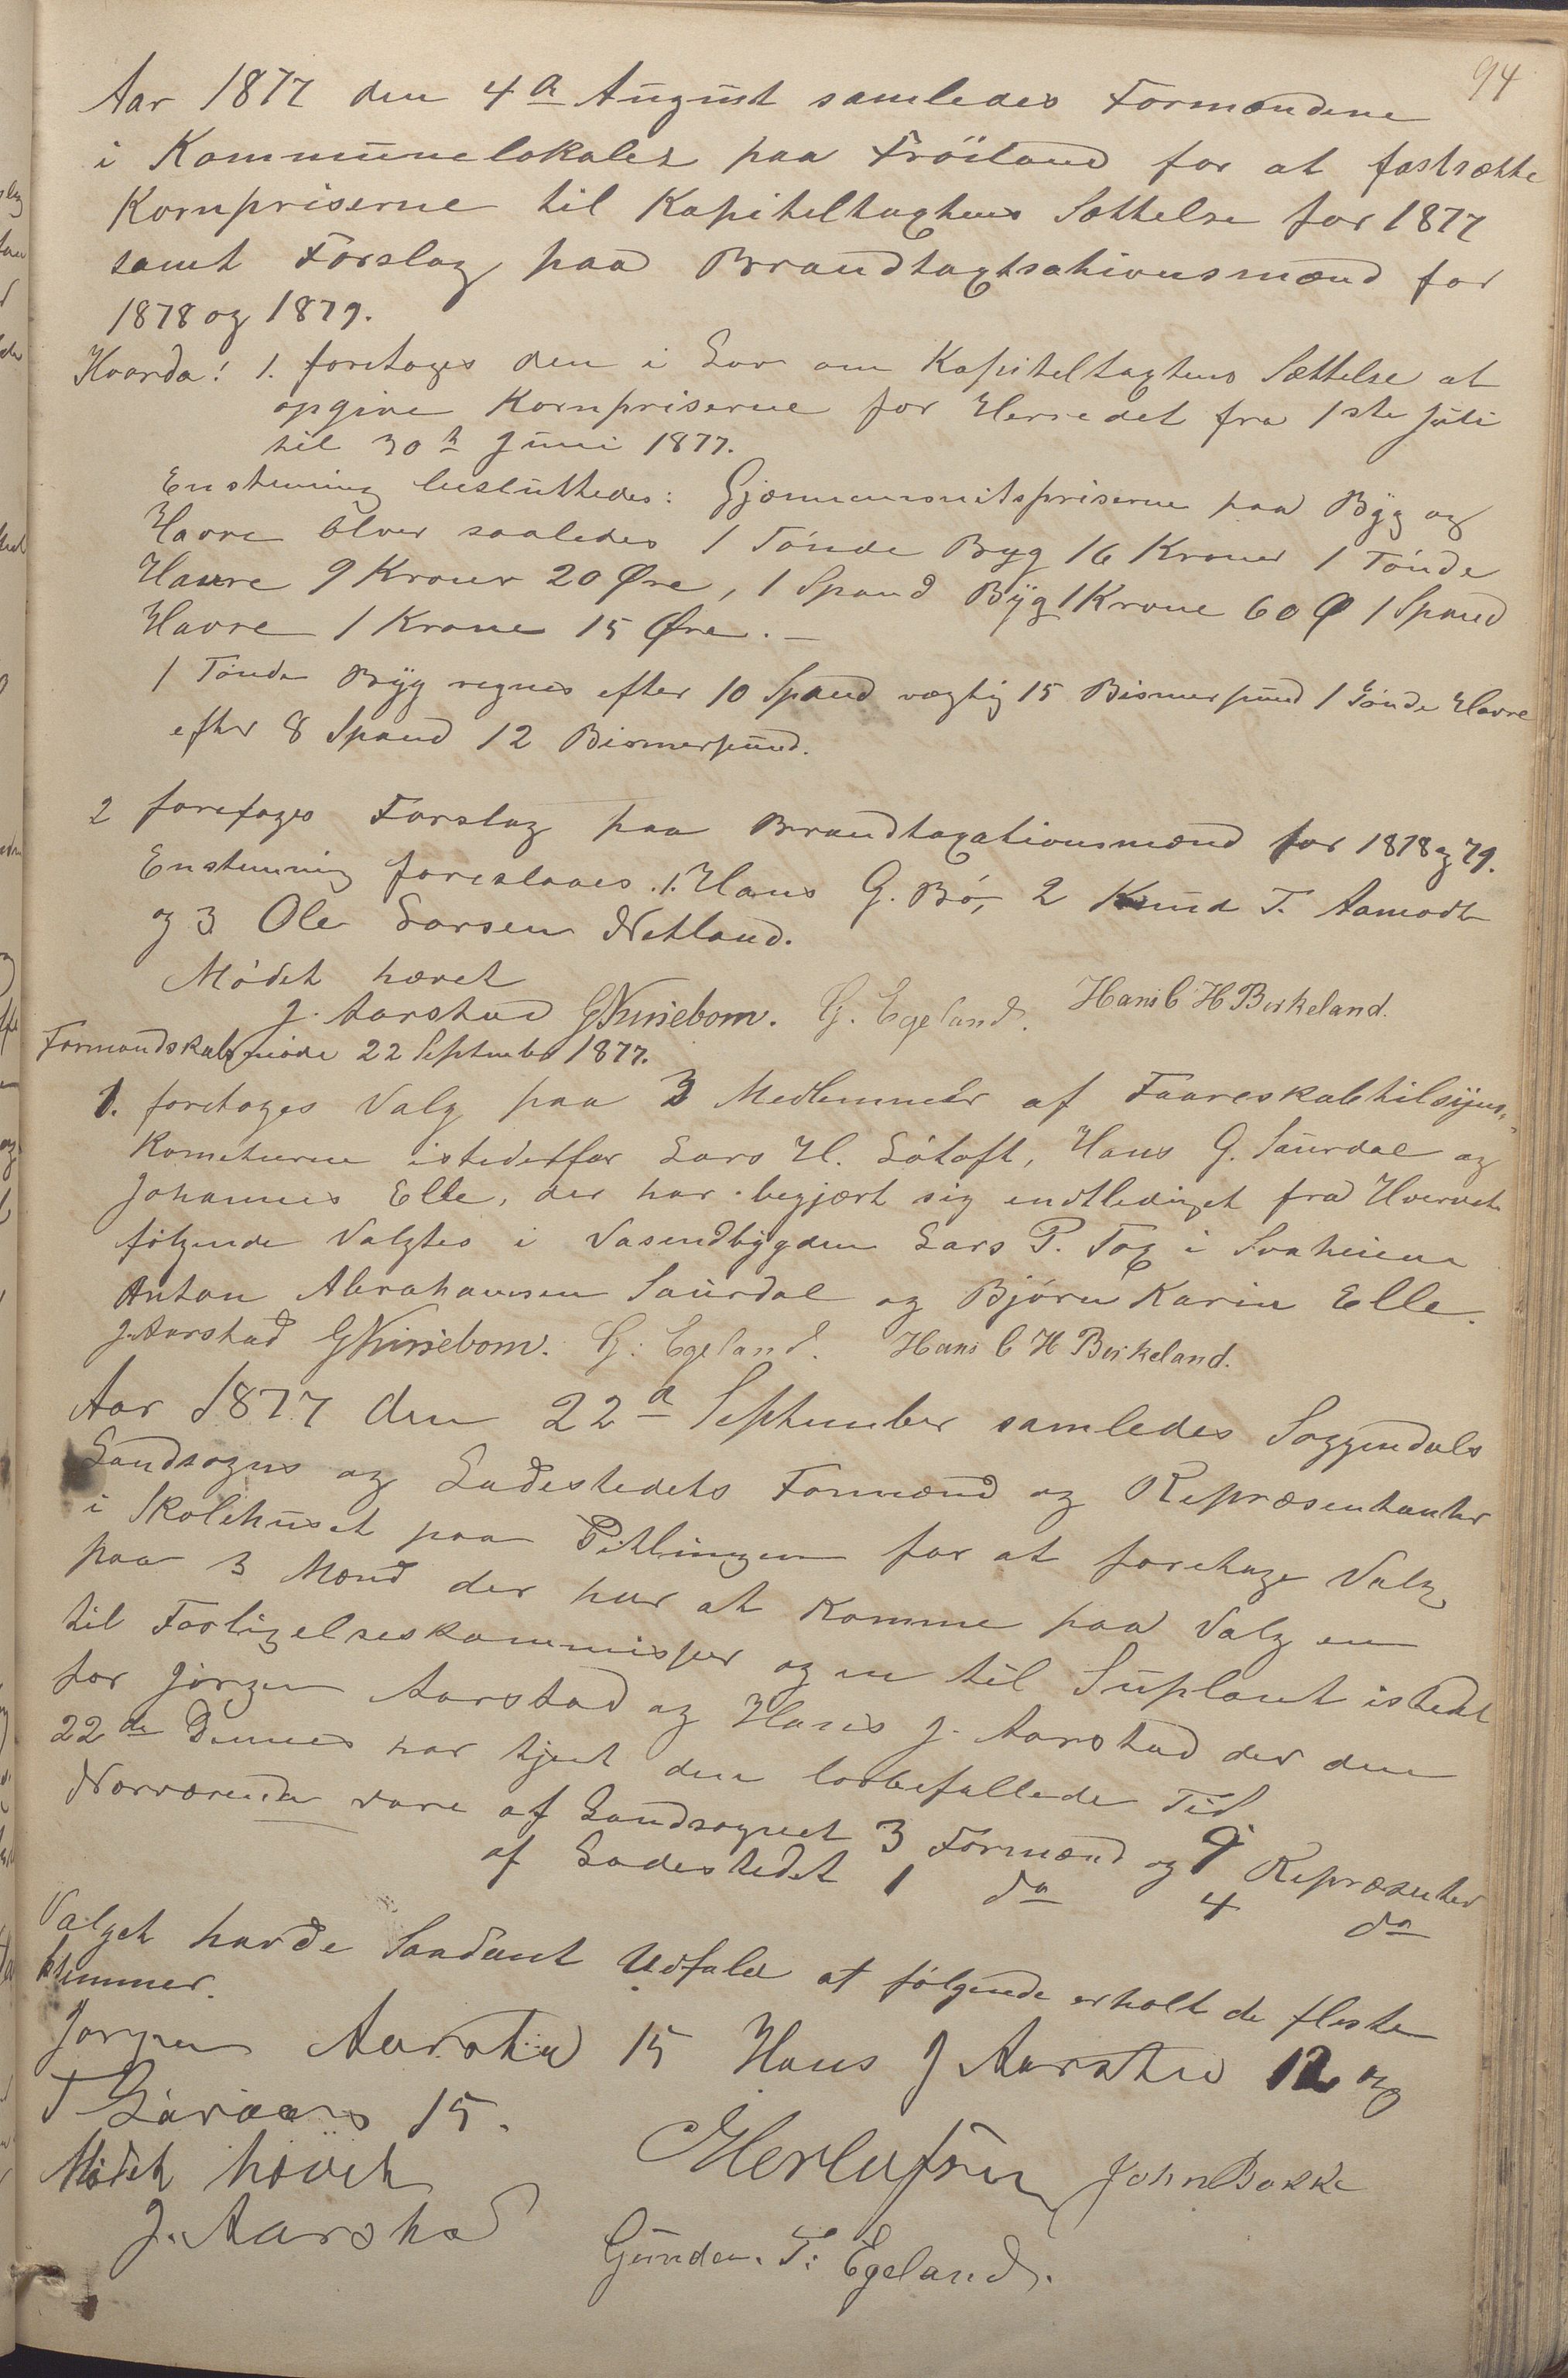 94
Aar 1877 den 4de August samledes Formændene
i Kommunelokalet paa Fröiland for at fastsætte
Kornpriserne til Kapiteltaxtens Sættelse for 1877
samt Forslag paa Brandtaxtsationsmænd for
1878 og 1879.
Hvorda! 1. foretoges den i Lov om Kapiteltaxtens Sættelse at
opgive Kornpriserne for Herredet fra 1ste Juli
til 30te Juni 1877.
Enstemmig besluttedes: Gjennemsnitspriserne paa Byg og
Havre bliver saaledes 1 Tónde Byg 16 Kroner 1 Tónde
Havre 9 Kroner 20 Øre, 1 Spand Byg 1 Krone 60 Ø 1 Spand
Havre 1 Krone 15 Øre. —
1 Tónde Byg regnes efter 10 Spand vægtig 15 Bismerpund 1 Tónde Havre
efter 8 Spand 12 Bismerpund.
2 foretoges Forslag paa Brandtaxationsmænd for 1878 og 79.
Enstemmig foreslaaes .1. Hans G. Bó, 2 Knud T. Aamodt
og 3 Ole Larsen Netland.
Módet hævet
J. Aarstad G. Egeland. Hans C H Birkeland.
Formandskabsmóde 22 September 1877.
1. foretoges Valg paa 3 Medlemmer af Faareskabtilsyns-
Kometeerne istedetfor Lars H. Lótoft, Hans G. Saurdal og
Johannes Elle, der har begjært sig endtlediget fra Hvervet
fólgende Valgtes i Vasendbygden Lars P. Tox i Svaheiene
Anton Abrahamsen Saurdal og Bjórn Karin Elle.
J. Aarstad G. Egeland. Hans C H Birkeland.
Aar 1877 den 22de September samledes Soggendals
Landsogns og Ladestedets Formænd og Repræsentanter
i Skolehuset paa Pitlingen for at foretage Valg
paa 3 Mænd der har at komme paa Valg en
til Forligelseskommissær og en til Suplant istedet
for Jórgen Aarstad og Hans J. Aarstad der den
22de Dennes har tjent den lovbefallede Tid
Nærværende vare af Landsognet 3 Formænd og 9 Repræsenter
af Ladestedet 1 do 4 do
Valget havde Saadant Udfald at fólgende erholt de fleste
stemmer.
Jorgen Aarstad 15 Hans J Aarstad 12 og
T 15.
Módet hævet
Herlufsen John Bakke
J. Aarstad
Gunder. T. Egeland.